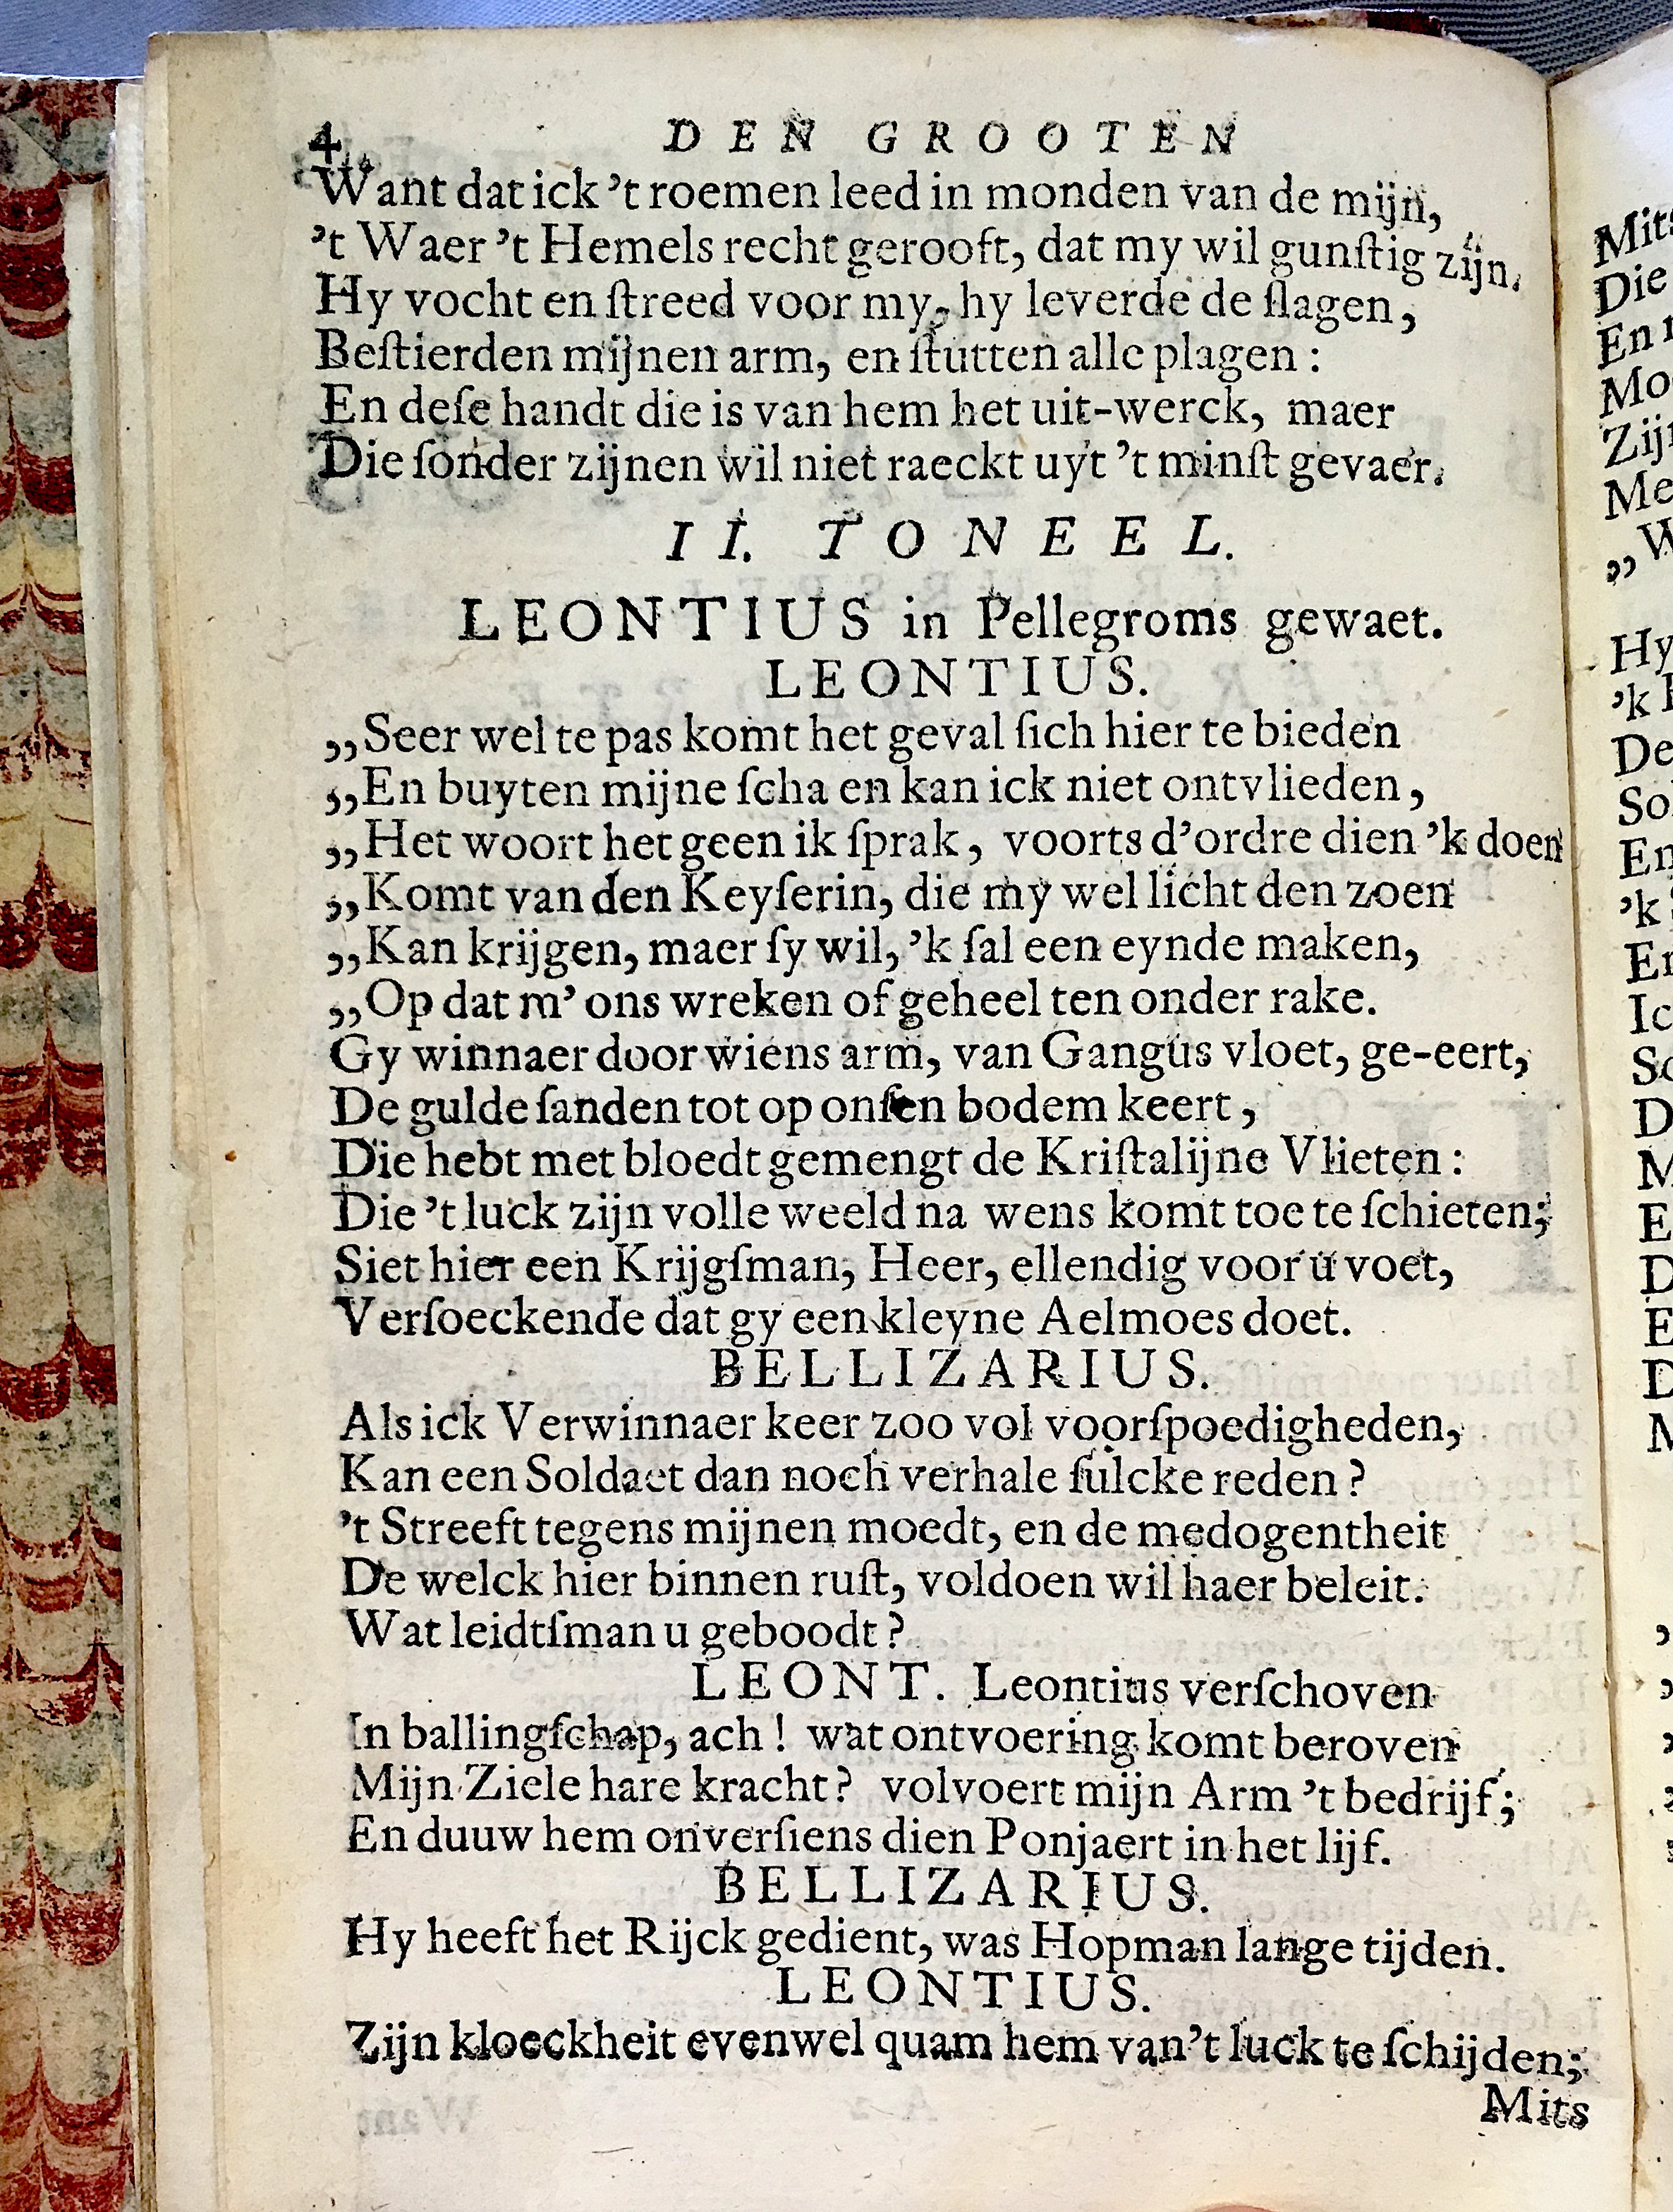 4 DEN GROOTEN
Want dat ick ’t roemen leed in monden van de mijn,
’t Waer ’t Hemels recht gerooft, dat my wil gunſtig zijn.
Hy vocht en ſtreed voor my, hy leverde de ſlagen,
Beſtierden mijnen arm, en ſtutten alle plagen:
En deſe handt die is van hem het uit-werck, maer
Die ſonder zijnen wil niet raeckt uyt ’t minſt gevaer.
II. TONEEL.
LEONTIUS in Pellegroms gewaet.
LEONTIUS.
„Seer wel te pas komt het geval ſich hier te bieden
„En buyten mijne ſcha en kan ick niet ontvlieden,
„Het woort het geen ik ſprak, voorts d’ordre dien ’k doen
„Komt van den Keyſerin, die my wel licht den zoen
„Kan krijgen, maer ſy wil, ’k ſal een eynde maken,
„Op dat m’ ons wreken of geheel ten onder rake.
Gy winnaer door wiens arm, van Gangus vloet, ge-eert,
De gulde ſanden tot op onſen bodem keert,
Die hebt met bloedt gemengt de Kriſtalijne Vlieten:
Die ’t luck zijn volle weeld na wens komt toe te ſchieten;
Siet hier een Krijgſman, Heer, ellendig voor u voet,
Verſoeckende dat gy een kleyne Aelmoes doet.
BELLIZARIUS.
Als ick Verwinnaer keer zoo vol voorſpoedigheden,
Kan een Soldaet dan noch verhale ſulcke reden?
’t Streeft tegens mijnen moedt, en de medogentheit
De welck hier binnen ruſt, voldoen wil haer beleit.
Wat leidtſman u geboodt?
LEONT. Leontius verſchoven
In ballingſchap, ach! wat ontvoering komt beroven
Mijn Ziele hare kracht? volvoert mijn Arm ’t bedrijf;
En duuw hem onverſiens dien Ponjaert in het lijf.
BELLIZARIUS.
Hy heeft het Rijck gedient, was Hopman lange tijden.
LEONTIUS.
Zijn kloeckheit evenwel quam hem van’t luck te ſchijden;
Mits
Mits
Die
En
Mo
Zij
Me
„W
Hy
’k
De
So
En
’k
En
Ic
So
D
M
E
D
E
D
M